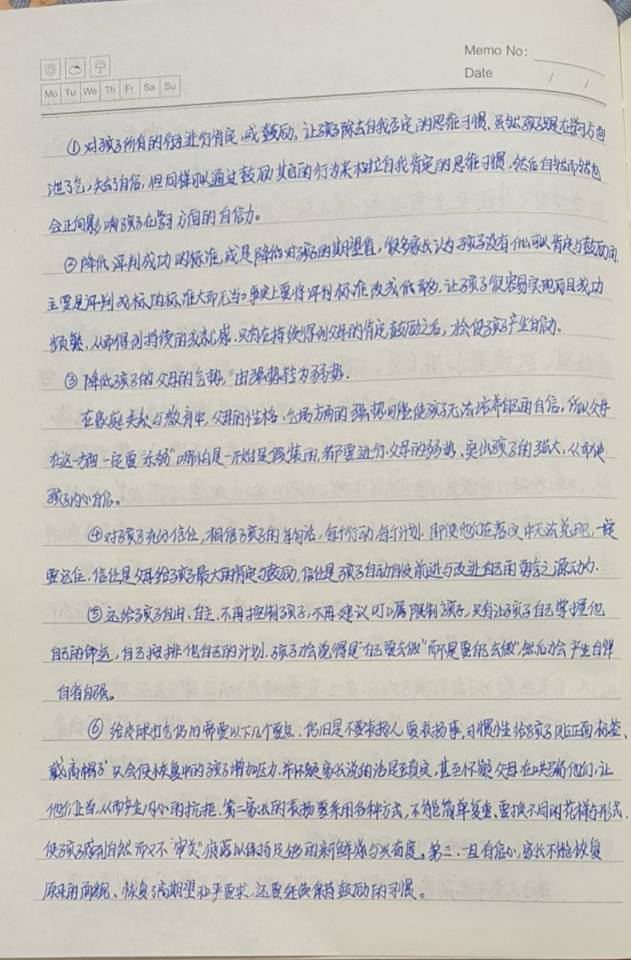 Memo No:
Date / /
Mo Tu We Th Fr Sa Su
①对孩子所有的行为进行肯定,或鼓励,让孩子除去自我否定的思维习惯,虽然孩子是在学习方面
泄了气,失去了自信,但同样可以通过鼓励其它的行为来树立自我肯定的思维习惯,然后自然而然地
会正向影响孩子在学习方面的自信力。
②降低评判成功的标准,或是降低对孩子的期望值,很多家长认为孩子没有什么可以肯定与鼓励的,
主要是评判或标的标准大而无当。事实上要将评判标准改成低而多,让孩子很容易实现而且成功
频繁,从而得到持续的成就感,只有在持续得到父母的肯定鼓励之后,才会使孩子产生自信力。
③降低孩子的父母的气势,由强势转为弱势.
在家庭关系与教育中,父母的性格、气场方面的强势可能使孩子无法培养起来的自信,所以父母
在这一方面一定要"示弱"哪怕是一开始是假装的,都要进行父母的弱势,突出孩子的强大,从而使
孩子内心自信。
④对孩子充分信任,相信孩子的每句话,每个行动,每个计划.即使他们在落实中无法兑现,一定
要记住,信任是父母给孩子最大的肯定与鼓励,信任是孩子自动自发前进与改进自己的勇气之源动力.
⑤交给孩子自由、自主,不再控制孩子,不再建议叮嘱限制孩子,只有让孩子自己掌握他
自己的命运,自己按排他自己的计划,孩子才会觉得是"自己要去做"而不是"要我去做"然后才会产生自律
自省自强。
⑥给皮球打气仍旧需要以下几个要点.仍旧是不要表扬人要表扬事,习惯性给孩子贴正面标签、
戴"高帽子"只会使恢复中的孩子增加压力,并怀疑家长说的话是否真实,甚至怀疑父母在哄骗他们,让
他们上当,从而产生内心的抗拒.第二家长的表扬要采用各种方式,不能简单复重,要换不同的花样与形式.
使孩子感到自然而又不"审美"疲劳以保持足够的新鲜感与兴奋度。第三.一旦有信心,家长不能恢复
原来的面貌、恢复高期望和严要求,还要继续保持鼓励的习惯。